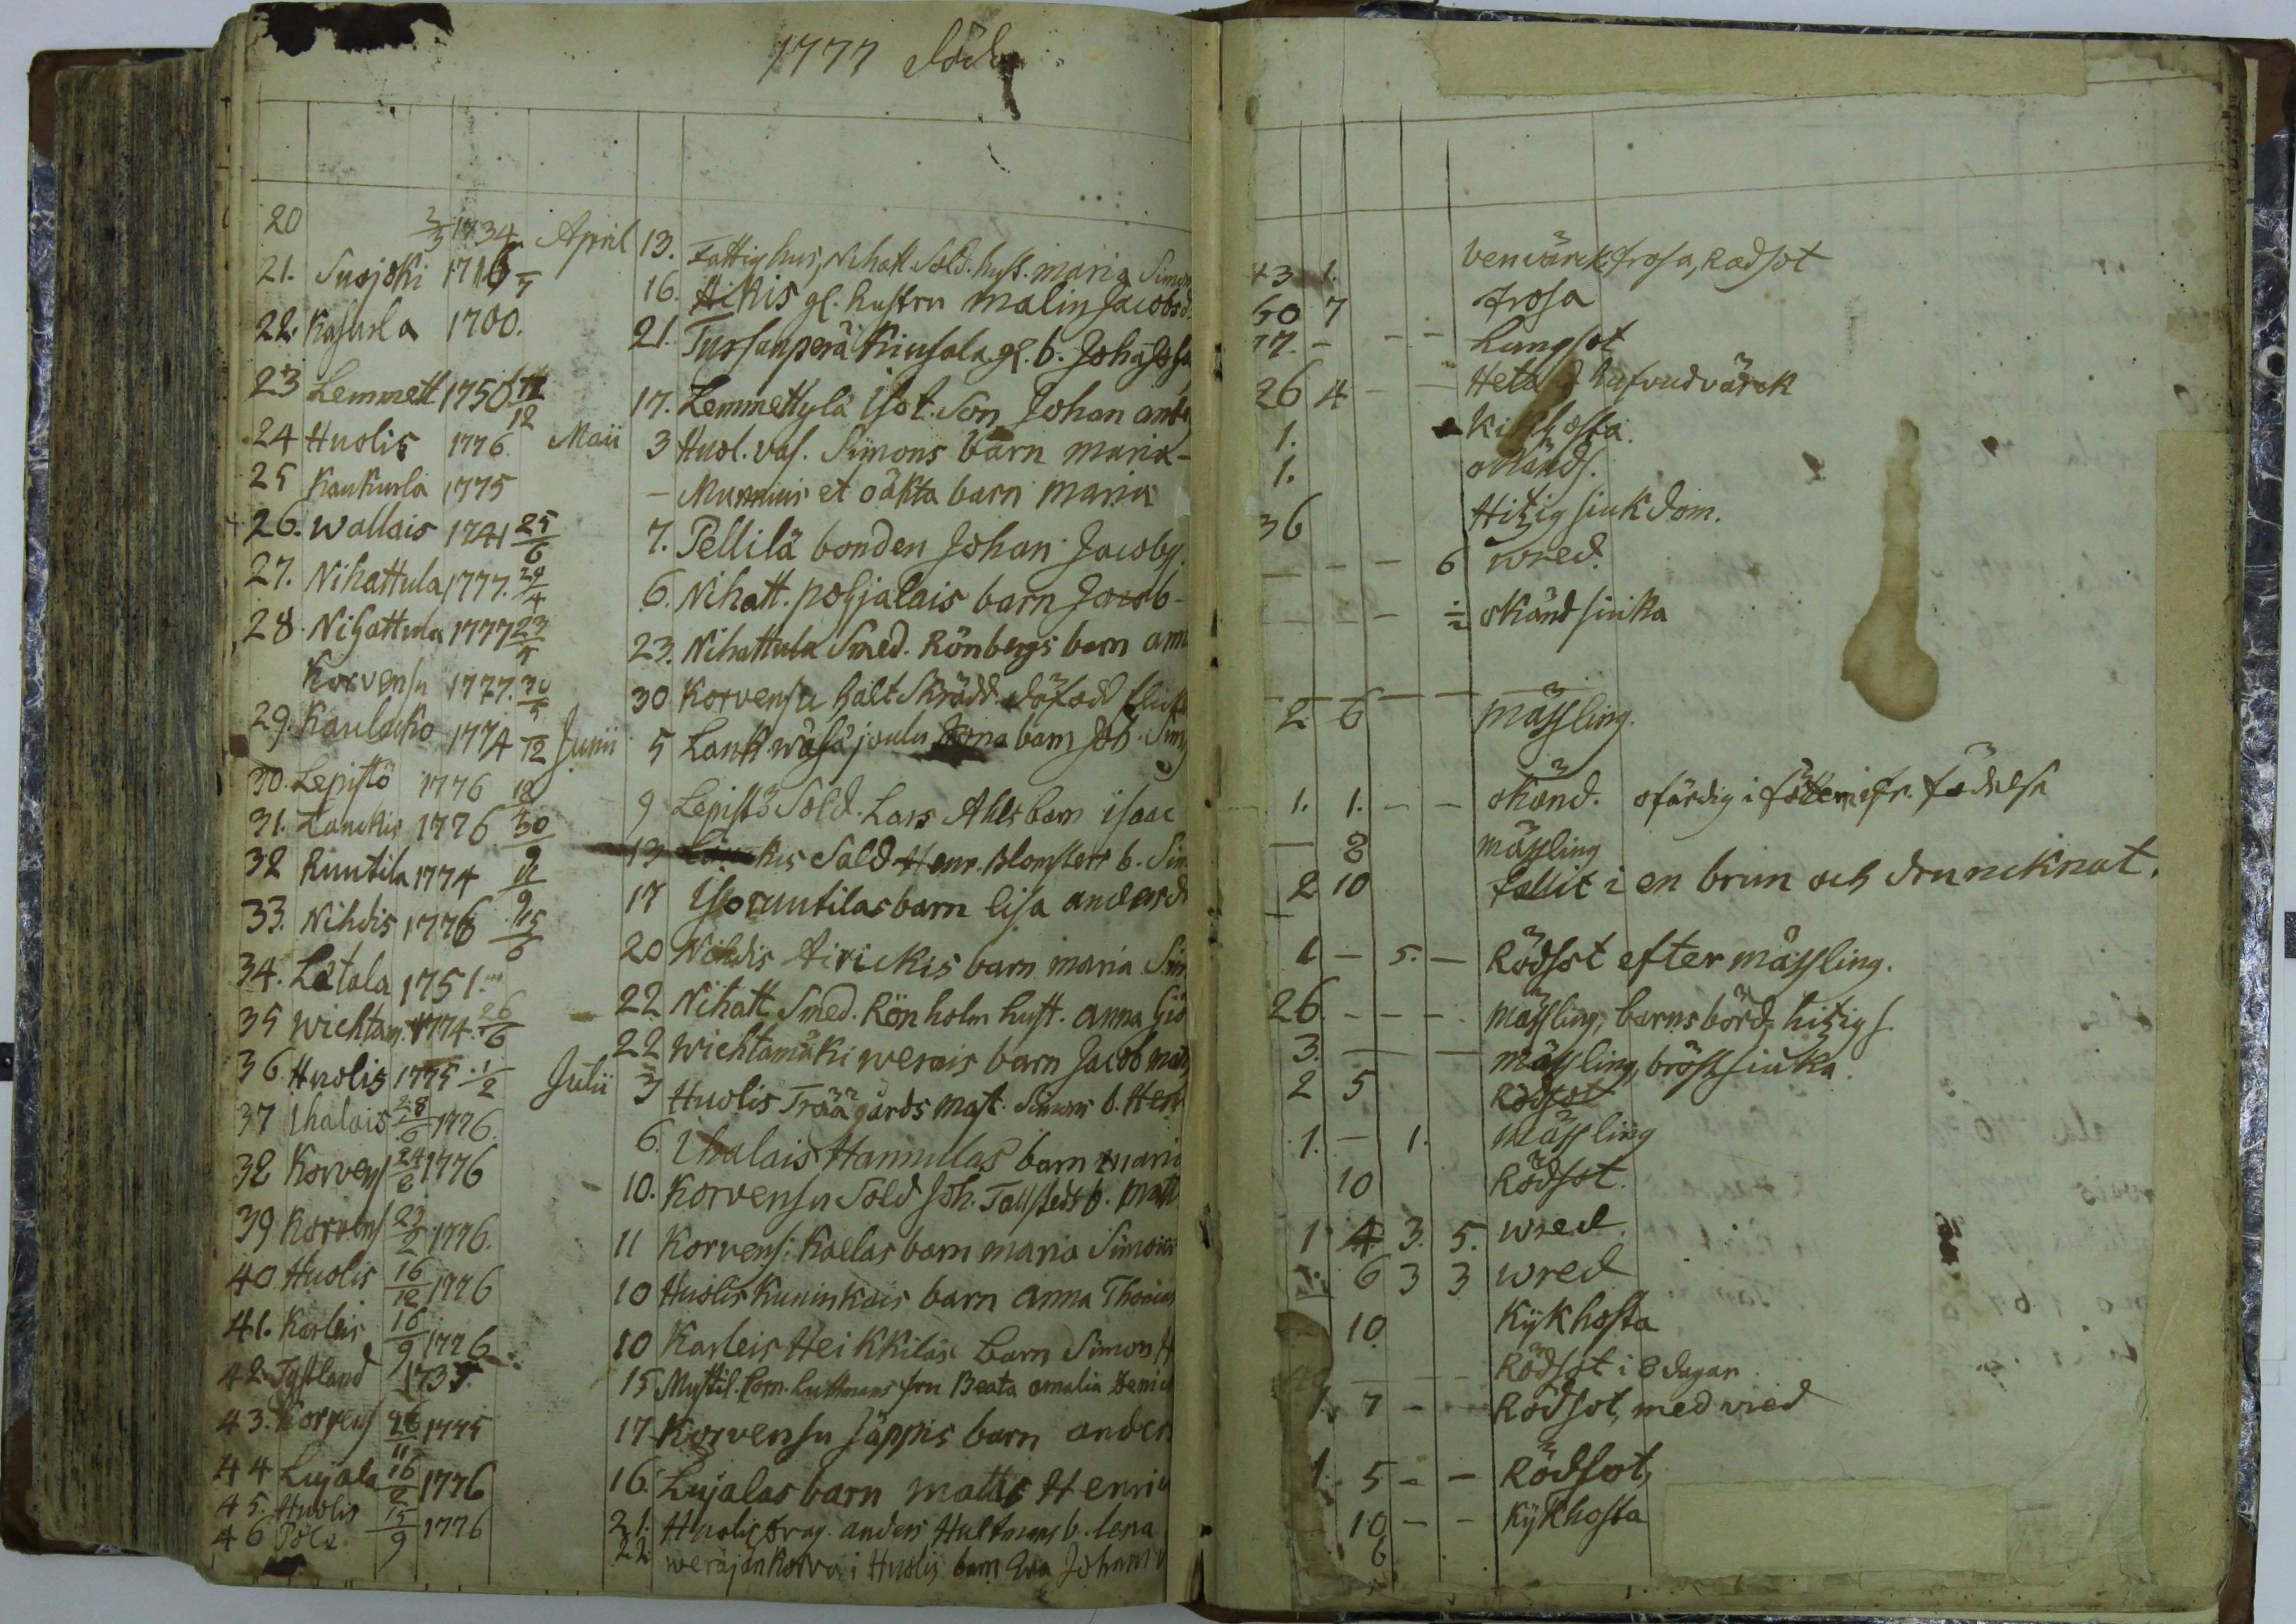 1777 döde
20 3/3 1734 April 13. Fattighus, Nihatt. Sold. hust. maria Simon
21. Suojoki 1716 16. Aikis gl. hustru malin Jacobsd.
22. Kasurla 1700. 21. Tursanperä Kiusala gl. b. Joha
23 Lemmett 1750 12/12 17. Lemmettylä Isot. Son Johan ande
24 Huolis 1776. Maii 3 Huol. vas. Simons barn maria -
25 Kaukurla 1775 - Munnuis et oäkta barn maria
26. Wallais 1741 25/6 7. Pellilä bonden Johan Jacobss.
27. Nihattula 1777. 29/4 6. Nihatt. pohjalais barn Jacob -
28. Nihattula 1777 23/5 23. Nihattula Smed. Rönbergs barn ann
Korvensu 1777. 30/5 30 Korvensu halt Skrädd. döfödd flick
29. Kaulacko 1774 12 Junii 5 Lank wäsä joulu barn Joh. Sim
30. Lepistö 1776 12 9 Lepistö Sold. Lars Ahls barn isaac
31. Lanckis 1776 30/9 13 Sald Henr. Blomsters b. Sim
32 Ruutila 1774 9 17 Isoruutilas barn lisa andersd
33. Nihdis 1776 15/6 20 Nihdis Airickis barn maria Sim
34. Latala 1751 22 Nihatt. Smed. Rönholm hust. anna Giö
35 Wichtam. 1774. 26/6 22 Wichtamäki werais barn Jacob mats
36. Huolis 1775 1/2 Julii 3 Huolis Träägårds mast. Simons b. Hen
37 Ihalais 28/6 1776. 6. Ihalais Hannulas barn maria
38 Korvens 24/6 1776 10. Korvensu Sold Joh. Tallsteds b. matt
39 Korvens 23/2 1776. 11 Korvens. Kallas barn maria Simons
40 Huolis 16/12 1776 10 Huolis Kuninkais barn anna Thomas
41. Karleis 16/9 1776 10 Karleis Heikkiläs barn Simon H
42. Tystland 1735. 15 Mystil. Com. Luthmans fru Beata amalia
43. Korvens 26/11 1775 17. Korvensu Jäppis barn anders
44 Lujala 16/2 1776 16. Lujalas barn matts Henri
45. Huolis 21. Huolis drag. anders Hultmans b. lena
46 Pöle 15/9 1776 22 weräjänkorva i Huolis barn Ewa Johan
43 1. benvärk frosa, Rödsot
60 7 frosa
77. - - - Lungsot
26 4 - - Heta hufvudvärck
1. Kikhosta.
1. okänds.
36 Hitzig siukdom.
- - - 6 wred.
- - - okänd siuka
2 6 - - mässling.
1. 1. - - okänd. ofärdig i föttern ifr. födelse
- 8 mässling
2 10 fallit i en brun och druncknat.
1 - 5. - Rödsot efter mässling.
26. - - - mässling, barnsbörd, hitzig s.
3. - - mässling, bröstsiuka.
2 5 Rödsot
1. - 1. mässling
10 Rödsot.
1 4. 3. 5. wred
6 3 3 wred
10 Kykhosta
- - - Rödsot i 8 dagar
7 - - Rödsot, med wred
1. 5 - - Rödsot,
10 - - Kykhosta
6